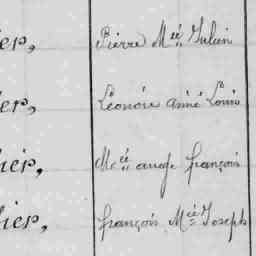 ier, Pierre Mée Julien
ier, Léonore aimé Louis
hier, Mée ange françois
hier, françois Mée Joseph